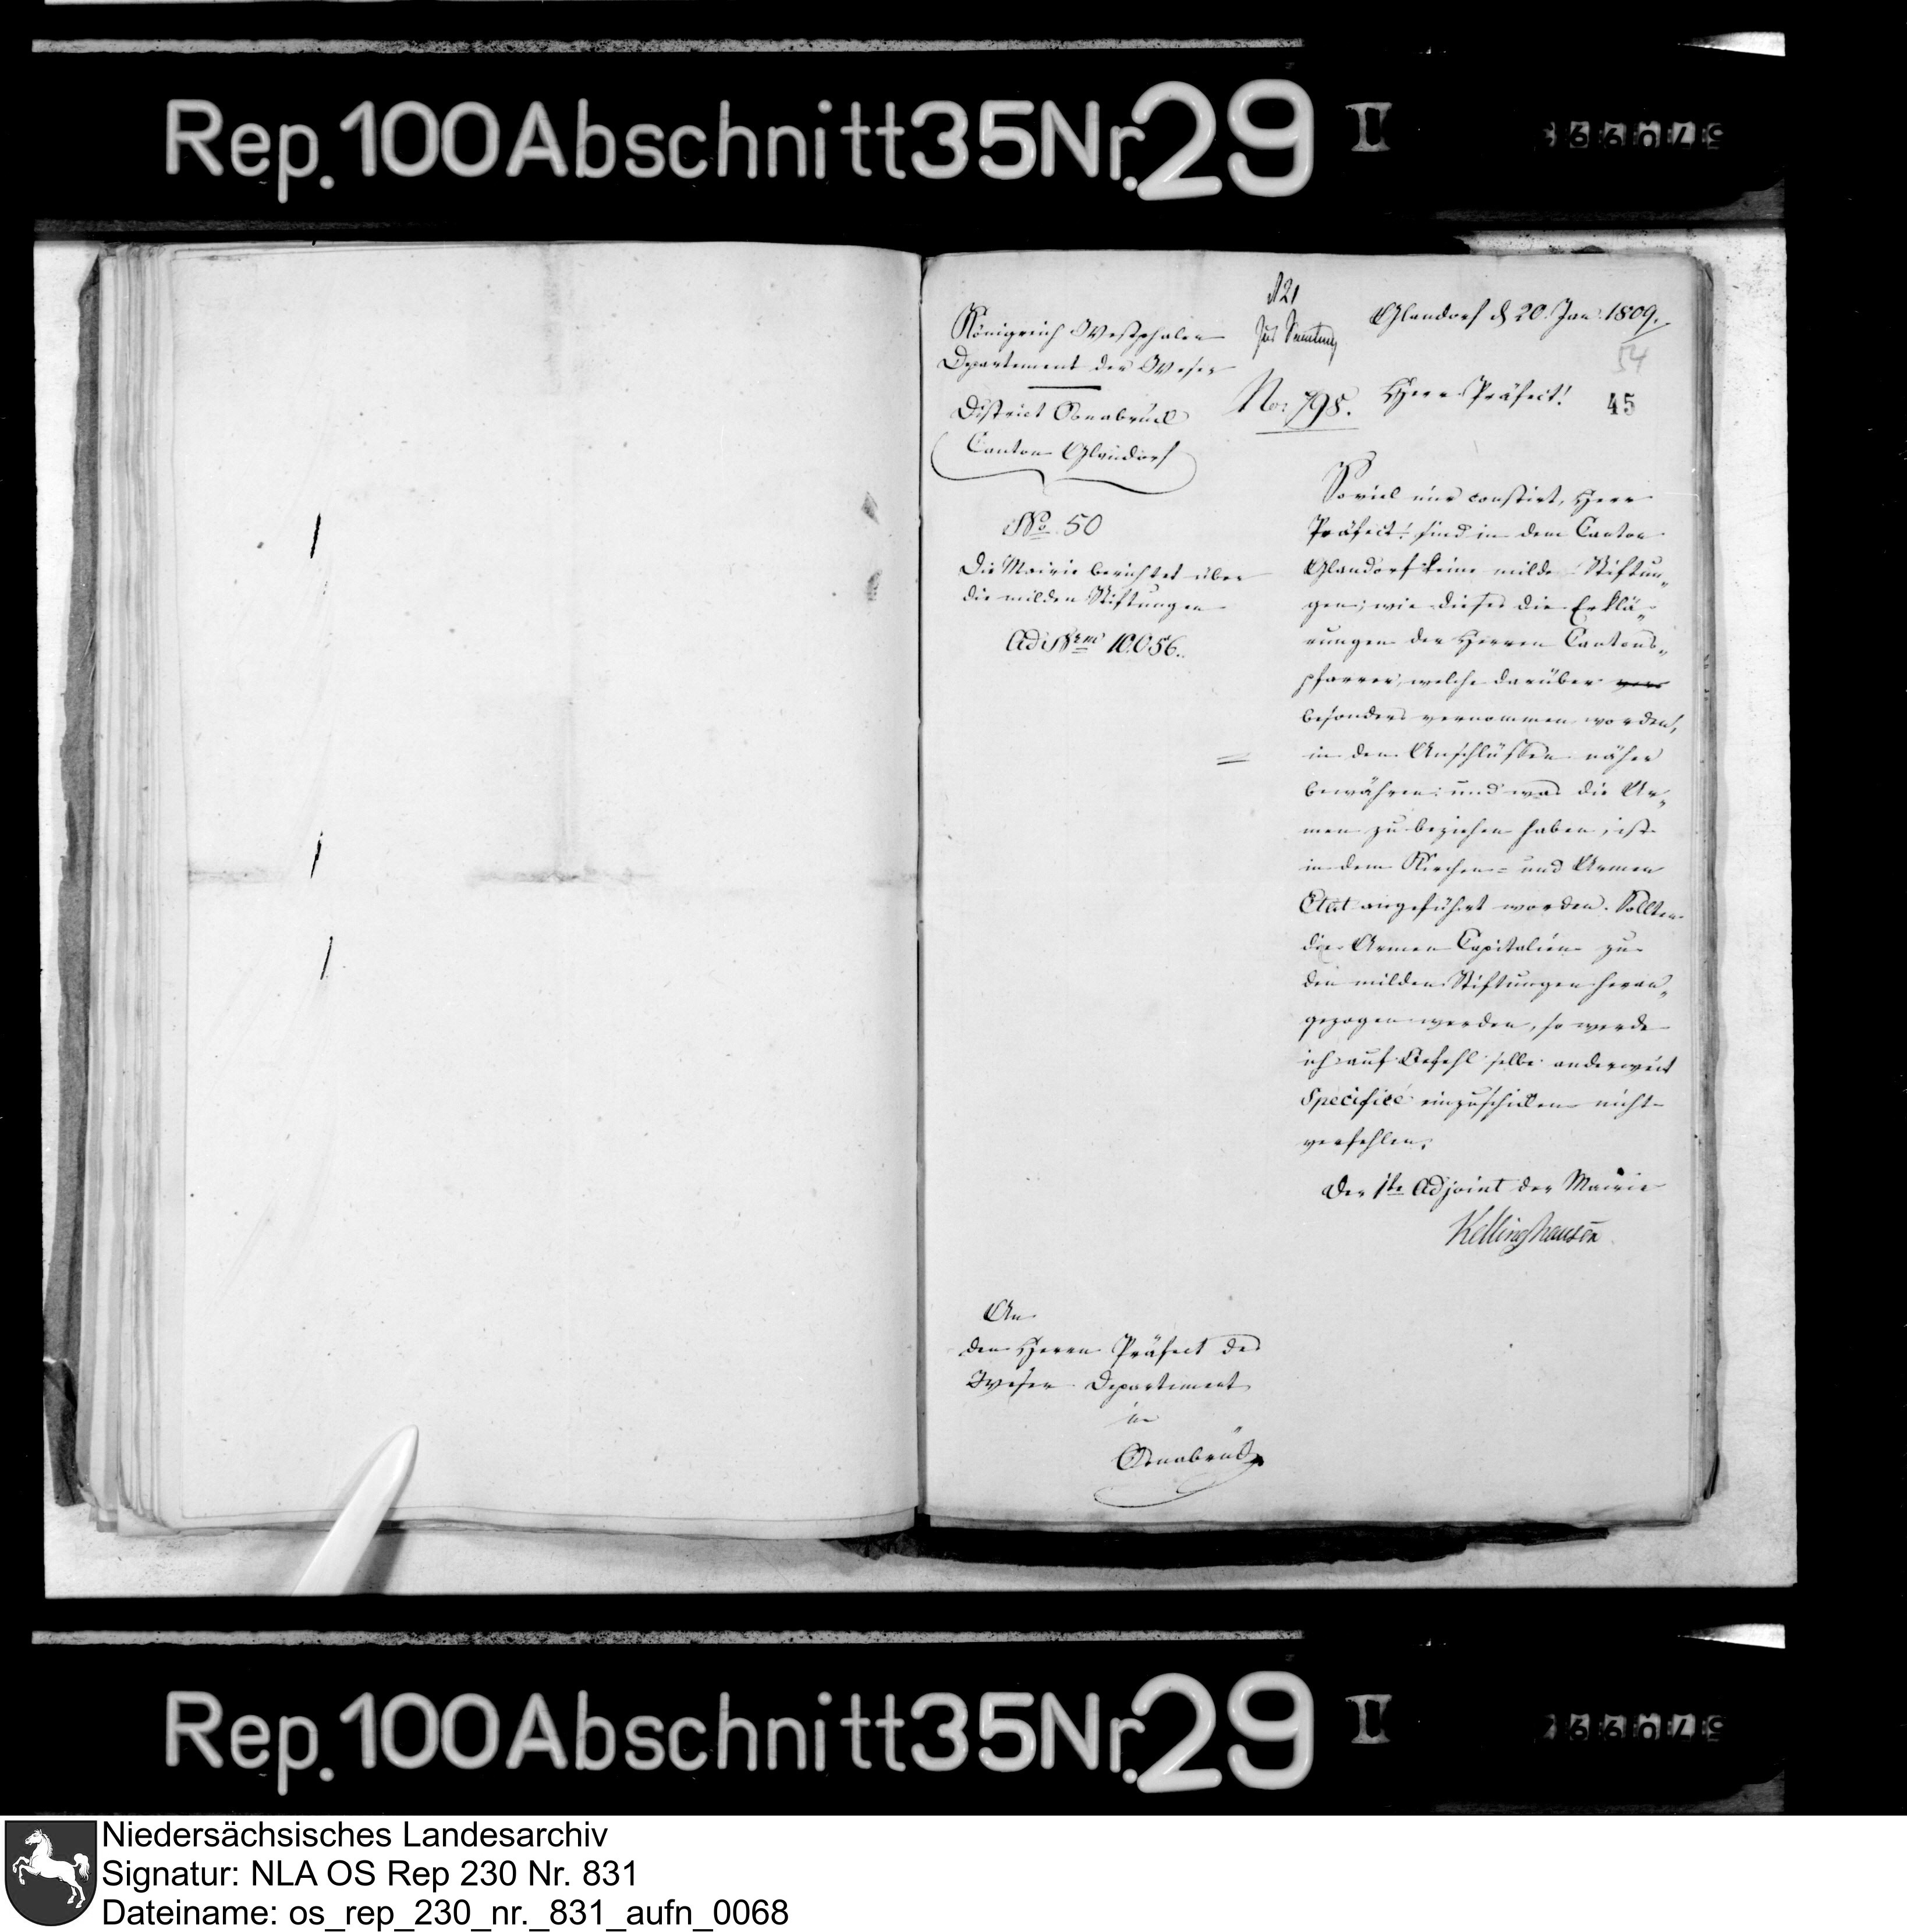 Rep. 100 Abschnitt 35 Nr. 29 I
Königreich Westphalen
Departement der Weser
District Osnabrück
Canton Glandorf
No. 50
Die Mairie berichtet über
die milden Stiftungen
Ad Nrm 10.056.
No. 798.
Glandorf d 20. Jan. 1809.
54
Herr Präfect!
45
Soviel mir constirt, Herr
Präfect! sind in dem Canton
Glandorf keine milde Stiftun„
gen; wie dieses die Erklä„
rungen der Herren Cantons„
pfarrer, welche darüber
besonders vernommen worden,
in den Anschlüssen näher
bewähren: und was die Ar„
men zu beziehen haben, ist
in dem Kirchen= und Armen
Etat angeführt worden. Sollten
die Armen Capitalien zu
den milden Stiftungen heran„
gezogen werden, so werde
ich auf Befehl selbe anderweit
specifice einzuschicken nicht
verfehlen.
Der 1te Adjoint der Mairie
Kellinghausen
An
den Herrn Präfect des
Weser Departement
in
Osnabrück
Rep. 100 Abschnitt 35 Nr. 29 I
Niedersächsisches Landesarchiv
Signatur: NLA OS Rep 230 Nr. 831
Dateiname: os_rep_230_nr._831_aufn_0068